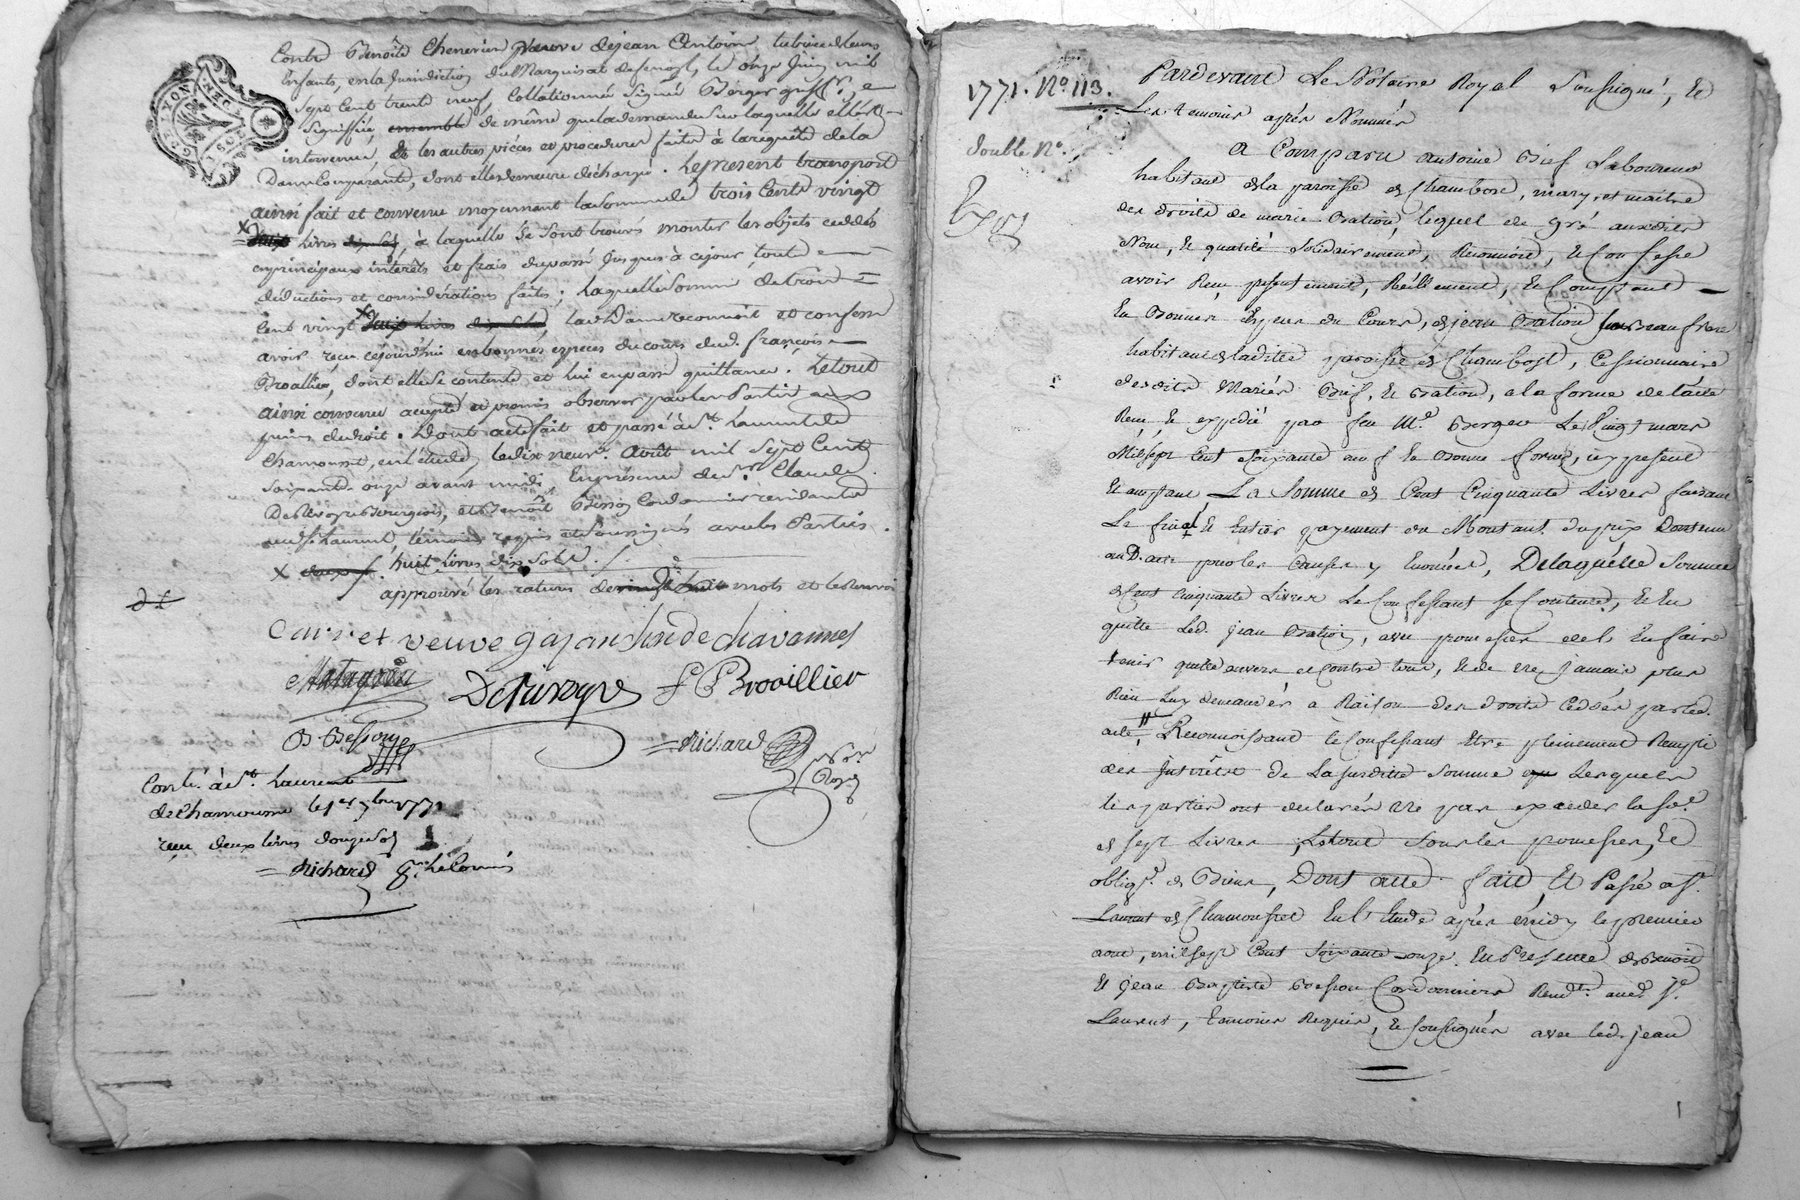 Contre Benoîte Chenevier veuve de jean Antoine tutrice de leurs
Enfants, en la Jurisdiction du Marquisat de le onze Juin mil
Sept Cent trente neuf, Collationné Signé Berger greff. y
Signiffié, ensemble de même que la demande Sur laquelle elle est
intervenue, Et les autres pièces et procedures faites à la requête de la
Dame Comparante, dont elle demeure déchargé. Le present transport
ainsi fait et convenu moyennant la Somme de trois Cents vingt
X livres à laquelle Se Sont trouvés monter les objets cedés
en principaux intérêts et frais du passé Jusques à cejour, toute
déductions et considérations faites ; laquelle Somme de trois
Cent vingt X lad. Dame reconnoit et confesse
avoir reçu cejourd'hui en bonnes especes du cours dud. françois
Broallier, dont elle se contente et lui en passe quittance. Le tout
ainsi convenu accepté et promis observer par les Parties aux
peines de droit. Dont acte fait et passé à St. Laurent de
Chamousset, en l'étude, le dix neuf. Août mil Sept Cent
Soixante onze avant midi, En présence de Sr. Claude
Bourgeois, et Benoît Besson Cordonnier residants
aud. St. Laurent témoins requis et Soussignés avec les Parties.
X huit livres dix Sols ./.
approuvé les ratures de mots et le Renvoi
Carret veuve gajan de chavannes
F P Brovillier
B. Besson
Richard
Not. Roy.
Contr. à St. Laurent
de Chamousset le 1er 7bre 1771
reçu deux livres douze Sols
Richard
G LYON NEC
1771. No. 113.
double No.
Pardevant Le Notaire Royal Soussigné, Et
Les temoins après Nommés
A Comparu antoine Bief Laboureur
habitant de la paroisse de Chambost, mary et maitre
des droits de marie Bration, lequel de gré auxdits
Nom, Et qualité Solidairement, Reconnoit, Et Confesse
avoir Reçu presentement, Réellement, Et Comptant
En Bonnes Espeses du Cours, de jean Bration Son Beaufrere
habitant de ladite paroisse de Chambost, Cessionnaire
desdits Mariés Bief, Et Bration, a la forme de l'acte
Reçu, Et expedié par feu Me. Berger Le vingt mars
Milsept Cent Soixante neuf En Bonne forme, icy present
Et acceptant La Somme de Cent Cinquante Livres faisant
Le final Et Entier payement du Montant du prix Contenu
aud. acte pour les Causes y Enoncées, De laquelle Somme
de Cent Cinquante Livres Le Confessant se Contente, Et En
quitte Led. jean Bration, avec promesses de l'En faire
tenir quitte envers et Contre tous, Et de ne jamais plus
Rien Luy demander a Raison des droits Cedés par led.
acte, Reconnoissant le Confessant Etre pleinement Rempli
des Intérêts de La susditte Somme Lesquels
les parties ont declarés ne pas exceder la Se.
de sept Livres, Le tout Sous les promesses, Et
obligon. de Biens, Dont acte fait Et Passé a St.
Laurent de Chamousset En l'Etude après midy le premier
aout, milsept Cent Soixante onze. En Presence de Benoit
Et jean Baptiste Besson Cordonniers Resids. aud. St.
Laurent, temoins Requis, Et Soussignés avec led. jean